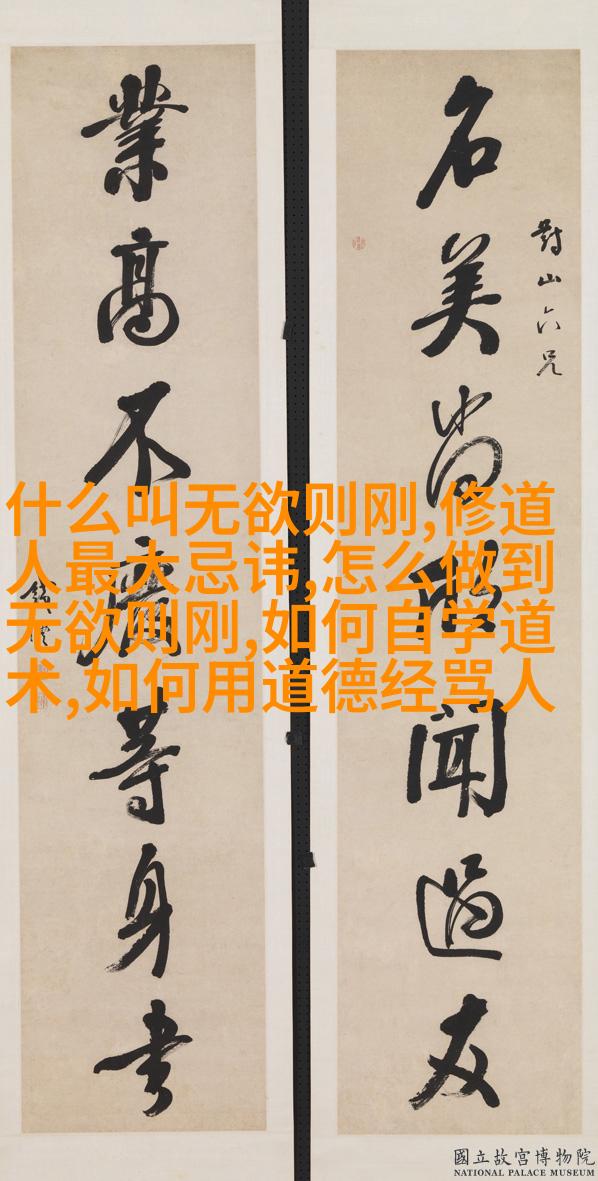 對山六兄
名美尚欣聞過友
業高不廢等身書
錢灃
什么叫无欲则刚,修道
人最大忌讳,怎么做到
无欲则刚,如何自学道
术,如何用道德经骂人
國立故宮博物院
NATIONAL PALACE MUSEUM